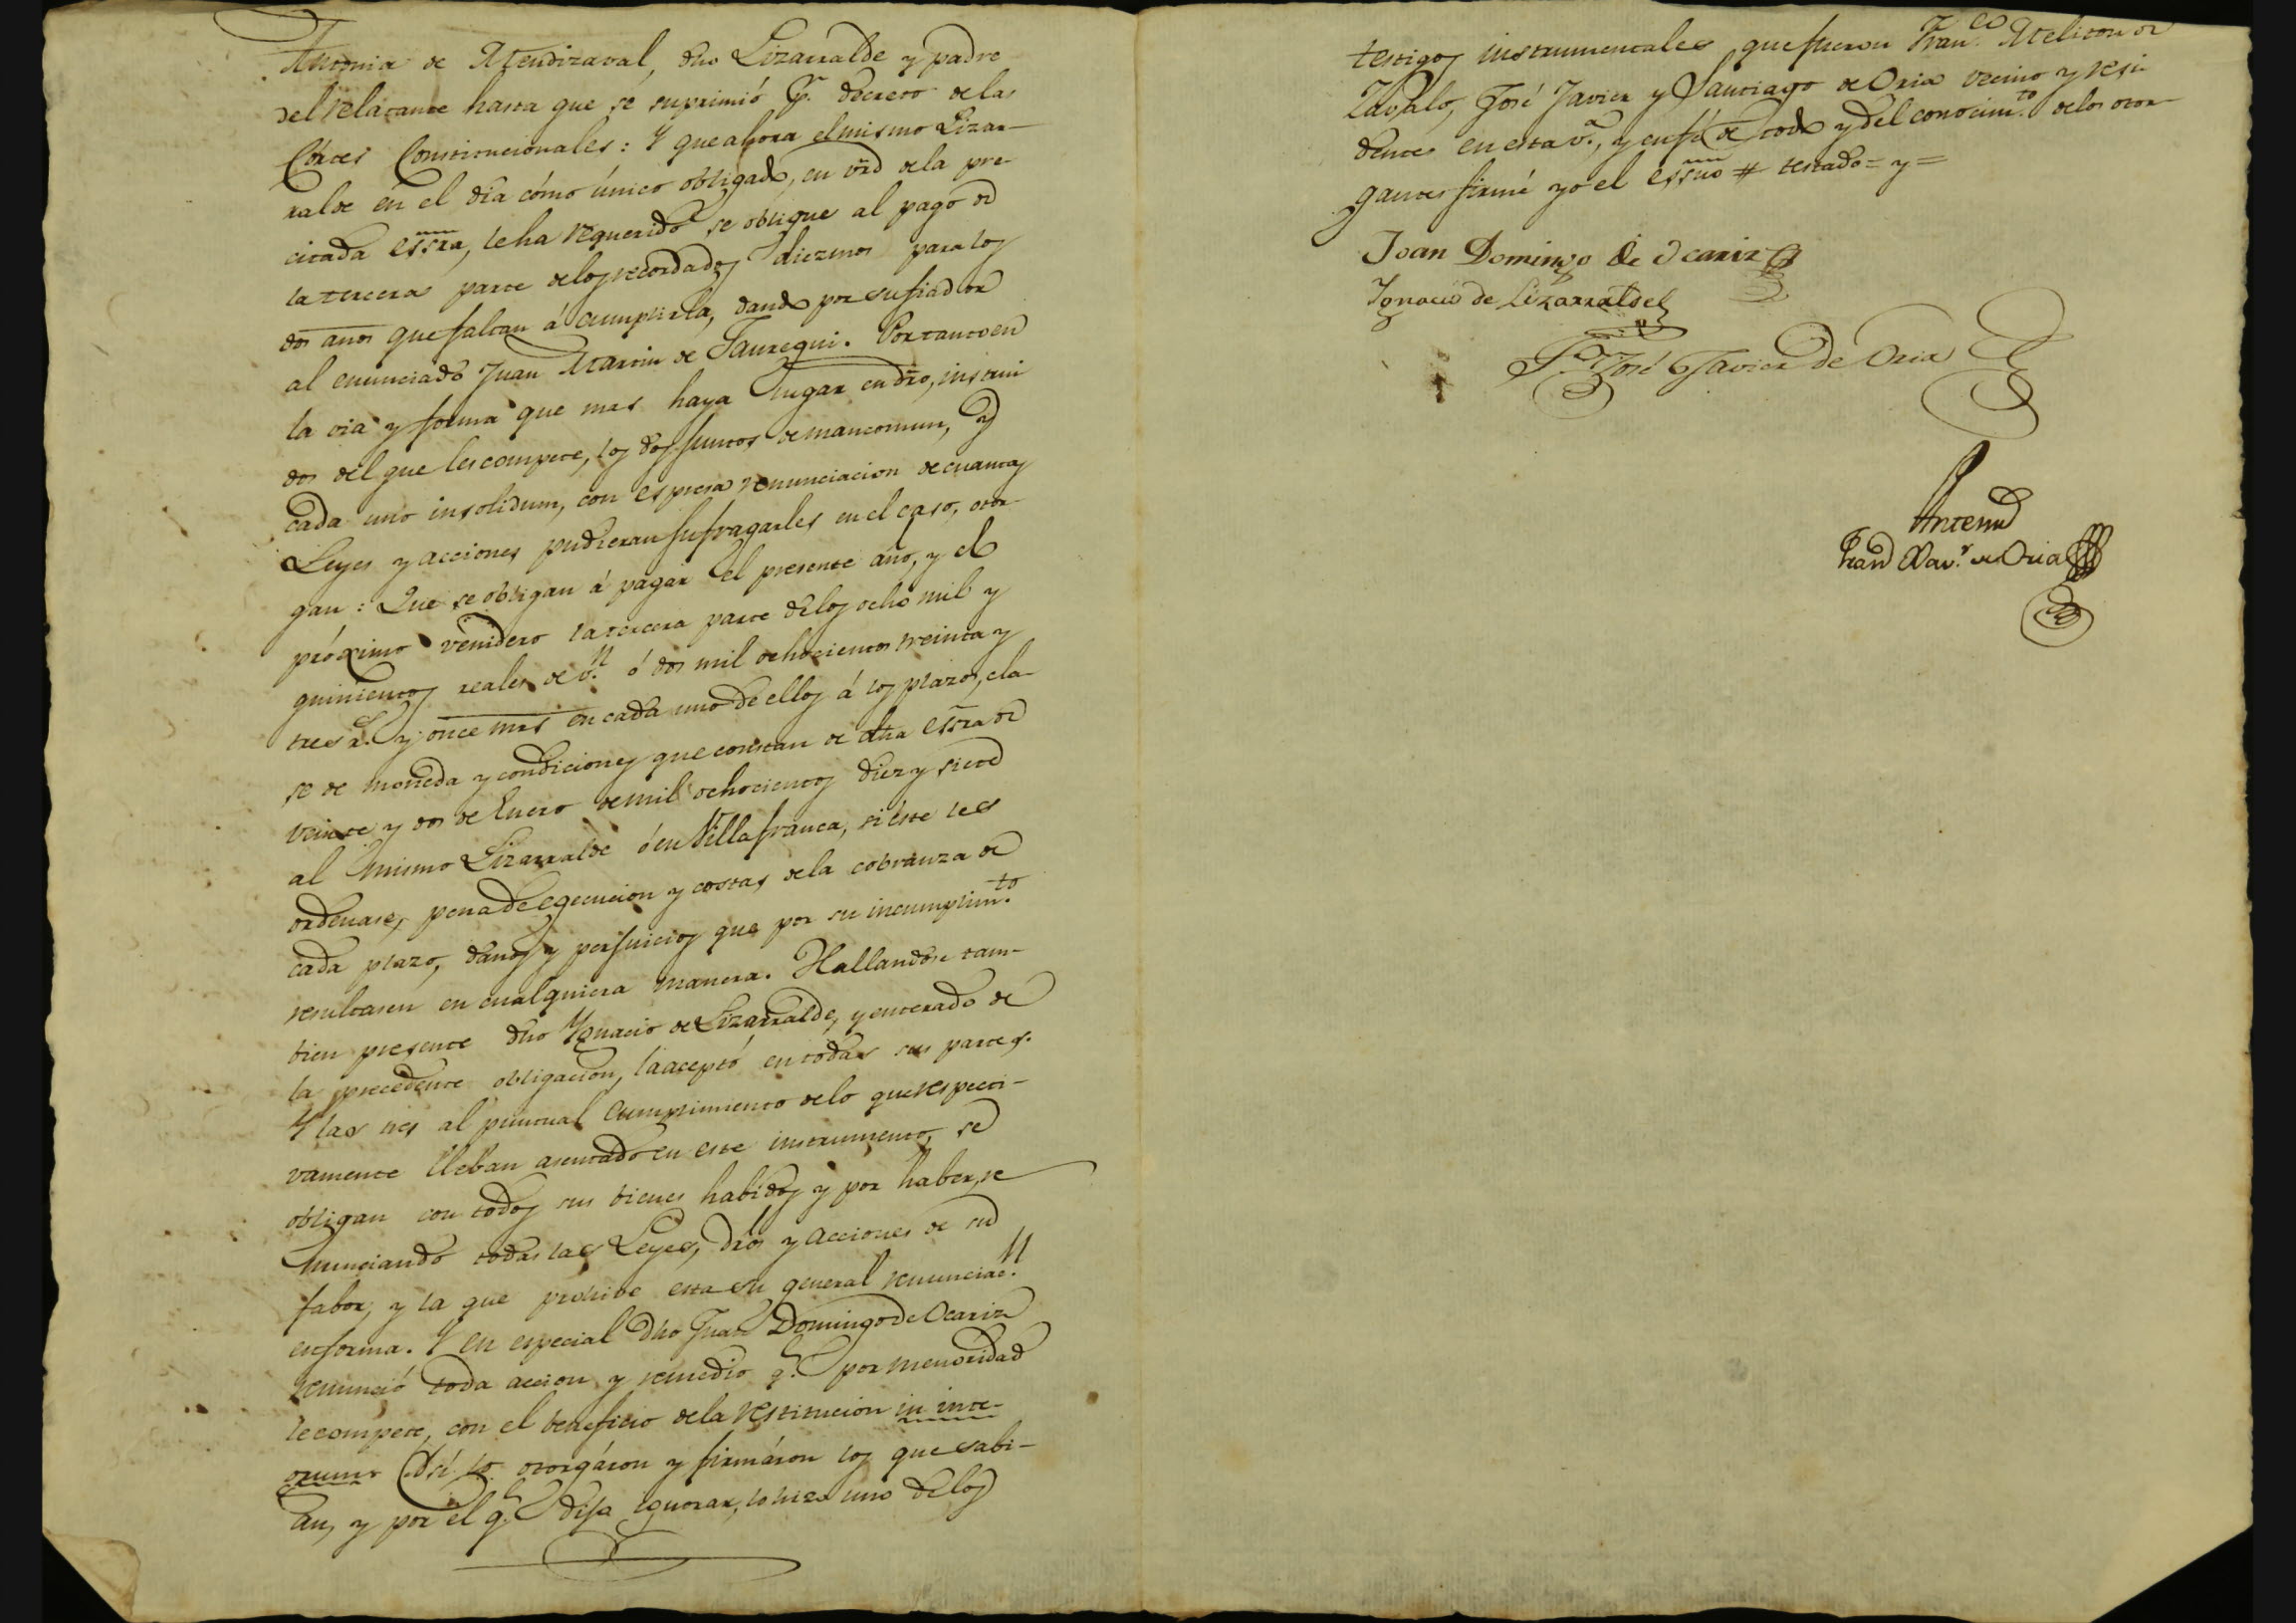 Antonia de Mendizaval, dho Lizarralde y padre
del relatante hasta que se suprimió pr. decreto de las
Córtes Constitucionales: Y que ahora el mismo Lizar-
ralde en el dia cómo único obligado, en vrd de la pre-
citada essra, le ha requerido se obligue al pago de
la tercera parte de los recordados diezmos para los
dos años que faltan á cumplirla, dando por su fiador
al enunciado Juan Martin de Jauregui. Por tanto en
la via y forma que mas haya lugar en dro, instrui
dos del que les compete, los dos juntos de mancomun, y
cada uno insolidum, con espresa renunciacion de cuantas
Leyes y acciones pudieran sufragarles en el caso, otor-
gan: Que se obligan á pagar el presente año, y el
próximo venidero la tercera parte de los ocho mil y
quinientos reales de v.n ó dos mil ochocientos treinta y
tres r.s y once mrs en cada uno de ellos á los plazos, cla-
se de moneda y condiciones que constan de dha essra de
veinte y dos de Enero de mil ochocientos diez y siete
al mismo Lizarralde ó en Villafranca, si éste les
ordenase, pena de egecucion y costas de la cobranza de
cada plazo, daños y perjuicios que por su incumplim.to
resultasen en cualquiera manera. Hallandose tam-
bien presente dho Ygnacio de Lizarralde, y enterado de
la precedente obligacion, la aceptó en todas sus partes.
Y las tres al puntual cumplimiento de lo que respecti-
vamente lleban asentado en este instrumento, se
obligan con todos sus bienes habidos y por haber, re
nunciando todas las Leyes, dros y acciones de su
fabor, y la que prohibe esta su general renunciac.n
en forma. Y en especial dho Juan Domingo de Ocariz
renunció toda accion y remedio q.e por menoridad
le compete, con el beneficio de la restitucion in inte-
grum. Asi lo otorgáron y firmáron los que sabi-
an, y por el q.e dijo ignorar, lo hizo uno de los
testigos instrumentales que fueron Fran.co Meliton de
Zavalo, José Javier y Santiago de Oria vecino y resi-
dentes en esta v.a, y en fé de todo y del conocim.to de los otor-
gantes firmé yo el essno # testado = y =
Joan Domingo de Ocariz
Ygnacio de Lizarralde
T.go José Javier de Oria
Antemi
Fran Xav.r de Oria